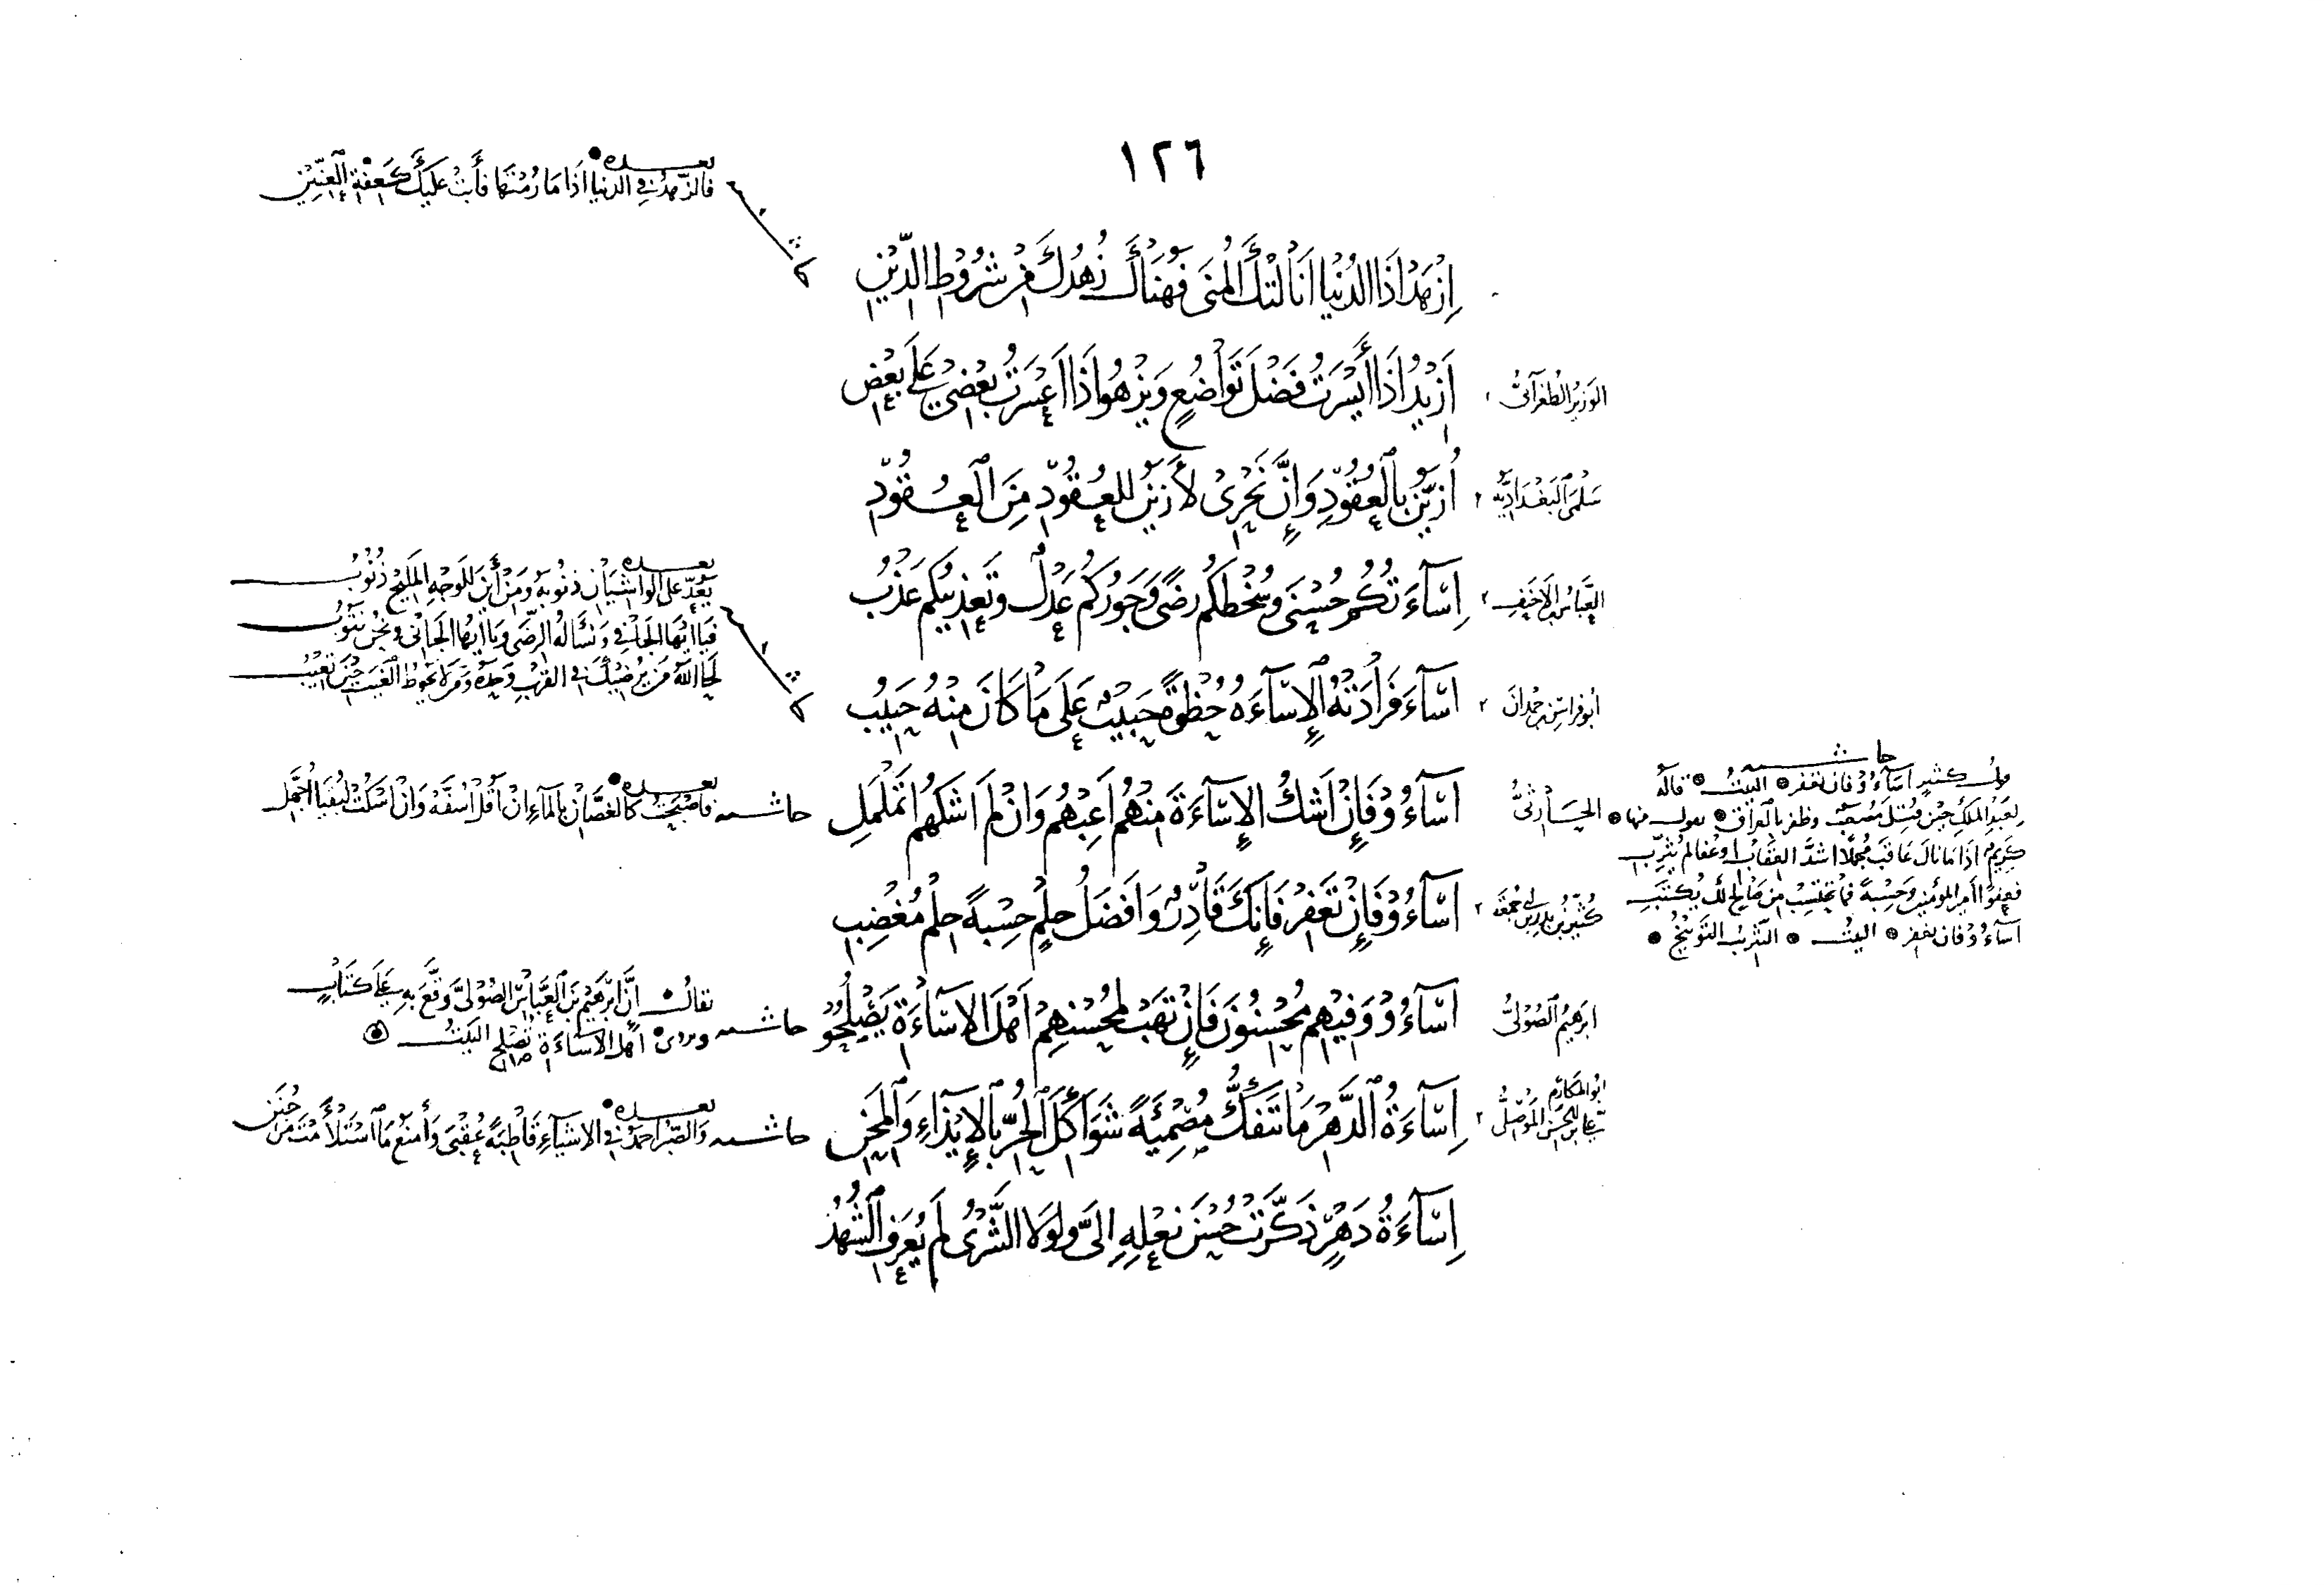 ١٢٦
بعده
فالزهد في الدنيا اذا ما رمتها فأبت عليك كعفة العنين
حاشية
اِزْهَدْ اذَا الدُنْيَا اَنَالَتْكَ الْمُنَى فَهُنَاكَ زُهْدُكَ مِنْ شُرُوْطِ الدِّيْنِ
الوزير الطغرآئى
اَزِيْدُ اذَا أَيْسَرْتُ فَضْلَ تَوَاضُعٍ وَيَزْهُو اذَا اَعْسَرْتُ بَعْضِىْ عَلَى بَعْضِ
سلمى البغدادية
اُزَيَّنُ بِالْعُقُوْدِ وَاِنَّ نَحْرِىْ لَأَزْيَنُ للعُقُوْدِ مِنَ الْعُقُوْدِ
العباس الاحنف
اِسَآءَتُكُمْ حُسْنَى وسُخْطُكُمْ رِضًى وَجَوْرُكُمُ عَدْلٌ وتَعْذِيْبُكم عَذْبُ
ابو فراس بن حمدان
اَسَآءَ فَزَادَتْهُ الْإِسَآءَةُ حُظْوَةً حَبِيْبٌ عَلَى مَا كَانَ مِنْهُ حَبِيْبُ
حاشية
بعده
يعدّ على الواشيان ذنوبه ومن أين للوجه المليح ذنوب
فيا ايها الجافى ونسأله الرضى ويا ايها الجانى ونحن نتوب
لحا الله من يرضيك في القرب وحده ومن لا يحوط الغيب حين تغيب
الحارثى
اَسَآءُوْ فَاِنْ اَشْكُ الْإِسَآءَةَ مِنْهُمُ اُعِبْهُمْ وَانْ لَمْ اَشْكُهُمْ اتَمَلْمَلِ
حاشية
بعده
فاصبحت كالغصان بالمآء ان اقل اسفه وان اسكت لبقيا اجمل
كثير بن عبد الرحمن ابى جمعة
اَسَآءُوْ فَاِنْ تَغْفِرْ فَإِنَّكَ قَادِرٌ وَاَفْضَلُ حِلْمٍ حِسْبَةً حِلْمُ مُغْضَبِ
حاشية
قول كثير اسآءوْ فان تغفر البيت قاله
لعبد الملك حين قتل مصعب وظفر بالعراق يقول منها
كريم اذا ما نال عاقب مجملا اشد العقاب او عفا لم يثرب
فعفوا امير المؤمنين وحسبة فما تحتسب من صالح لك يكتب
اسآءوْ فان تغفر البيت التثريب التوبيخ
ابرهيم الصولى
اَسَآءُوْ وَفِيْهِمْ مُحْسِنُوْنَ فَاِنْ تَهَبْ لمُحْسِنِهِمْ اَهْلَ الاِسَآءَةِ يَصْلُحُوْ
حاشية
يقال انّ ابرهيم بن العباس الصولى وقّع به على كتاب
ويروى اهل الاساءة تصلح البيت
ابو المكارم على بن الحسن الموصلى
اِسَآءَةُ الدَّهْرِ مَا تَنْفَكُّ مُصْمِيَةً شَوَاكُلَ الْحُرِّ بِالْإِيْذَآءِ وَالْمِحَنِ
حاشية
بعده
والصبر احمد في الاشيآء قاطبة عقبى وأمنع ما استلأمت من جنن
اِسَآءَةُ دَهْرٍ ذَكَّرَتْ حُسْنَ فعْلِهِ الىَّ ولَوْلَا الشَّرْىُ لَمْ يُعْرَفِ الشُهْدُ